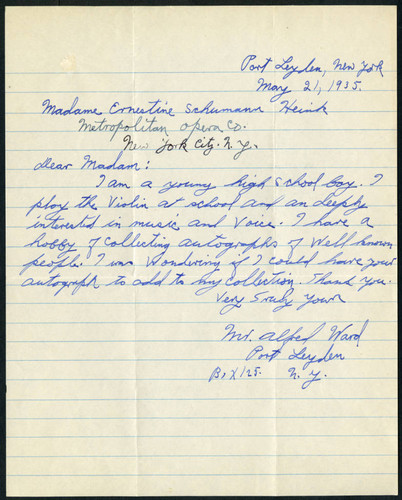 Port Leyden, New York
May 21, 1935.
Madame Ernestine Schumann Heink
Metropolitan Opera Co.
New York City. N.Y.
Dear Madam:
I am a young high school boy. I
play the Violin at school and am deeply
interested in music and Voice. I have a
hobby of collecting autographs of Well known
people. I was wondering if I could have your
autograph to add to my collection. Thank you.
Very Truly your
Mr. Alfred Ward
Port Leyden
Box 125. N.Y.